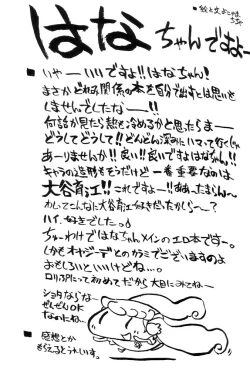 はなちゃんですよー
■いやーいいですよ!!はなちゃん!
まさか どれみ関係の本を自分で出すとは思いも
しませんでしたなー!!
何話か見たら熱も冷めるかと思ったらまー
どうしてどうして!!どんどん深みにハマって行くじゃ
ありませんか!!良い!!良いですよはなちゃん!!
キャラの造形もそうだけど一番重要なのは、
大谷育江!!これですよー!!ああ…たまらん〜
わしってこんなに大谷育江好きだったかしら〜?
ハイ、好きでした。
ちゅーわけではなちゃんメインのエロ本ですー。
しかもオヤジーデとのカラミでございますのよ
おもしろいといいけどね…。
ロリ3Pにって初めてだから大目にみてねー
ショタならなー
ぜんぜんOK
なのにねー。
■感想とか
もらえるとうれしいす。